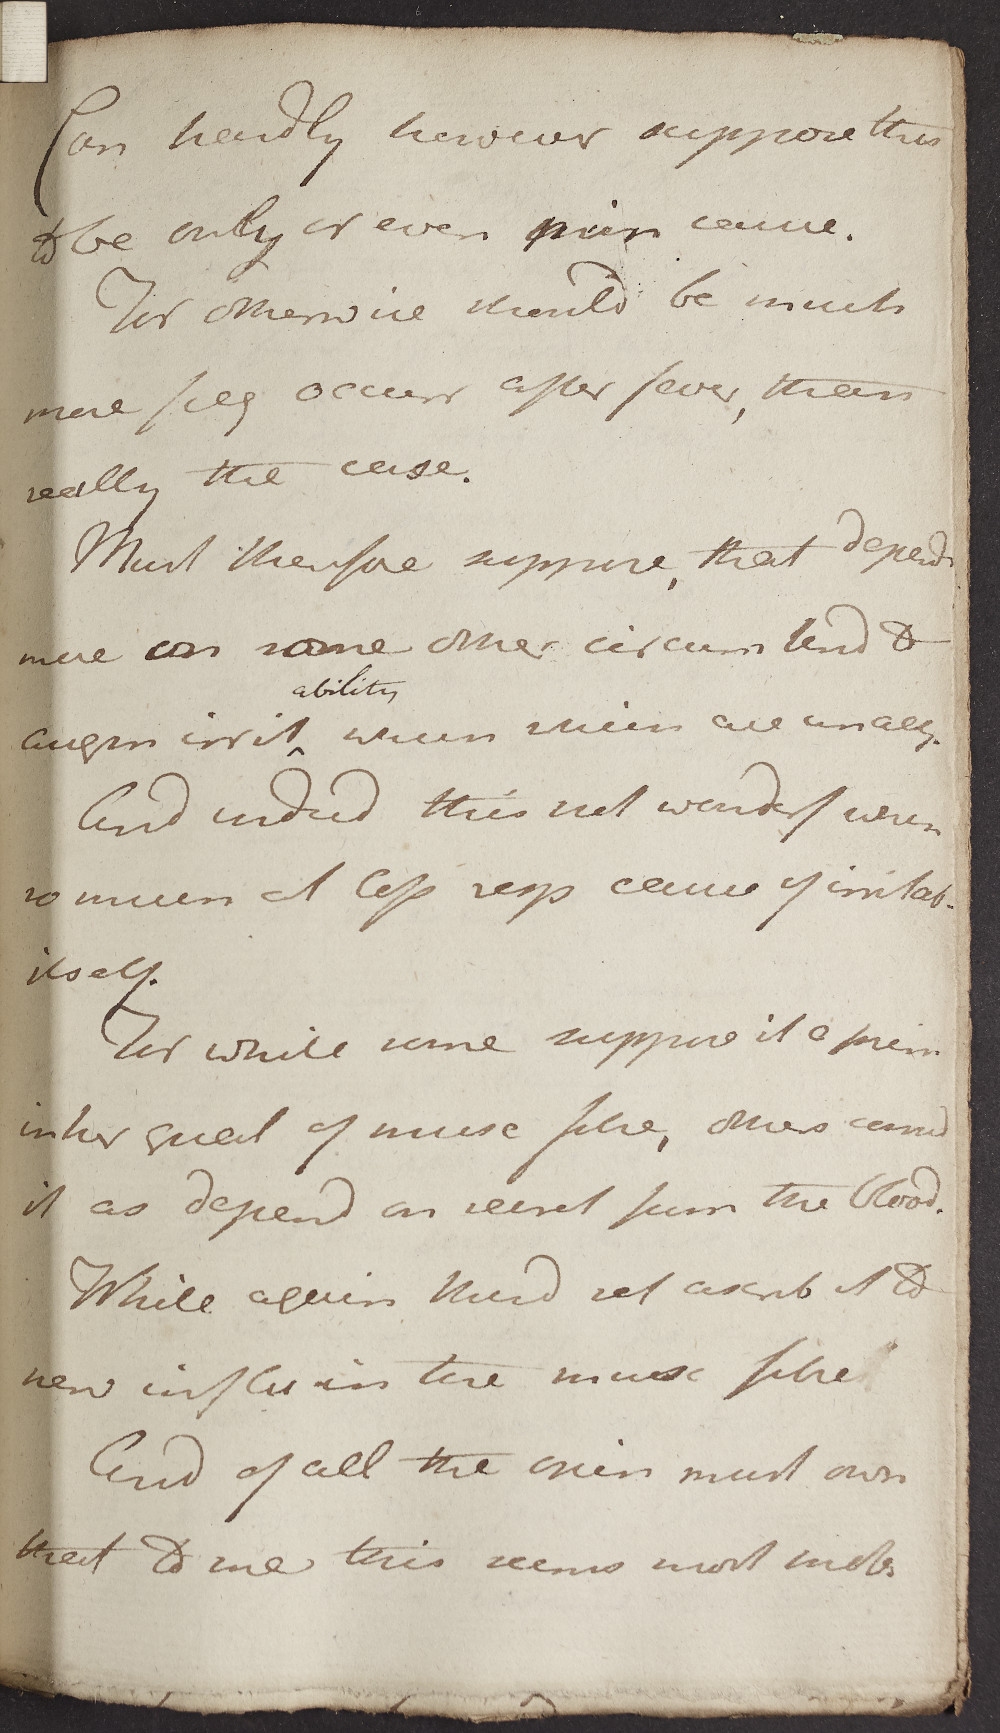 Can hardly however suppose this
to be only or even prin cause.
For otherwise should be much
more freq occurr after fever, than
really the case.
Must therefore suppose, that depends
more on some other circum tend to
augm irrit^ability when which are unacq.
And indeed this not wonderf when
so much at loss resp cause of irritab.
itself.
For while some suppose it a prim
inher qual of musc fibre, others consid
it as depend on secret from the blood.
While again third set ascrib it to
nerv influ in the musc fibre
And of all the opin must own
that to me this seems most